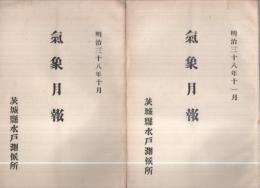 明治三十八年十一月
氣象月報
茨城縣水戸測候所
明治三十八年十月
氣象月報
茨城縣水戸測候所